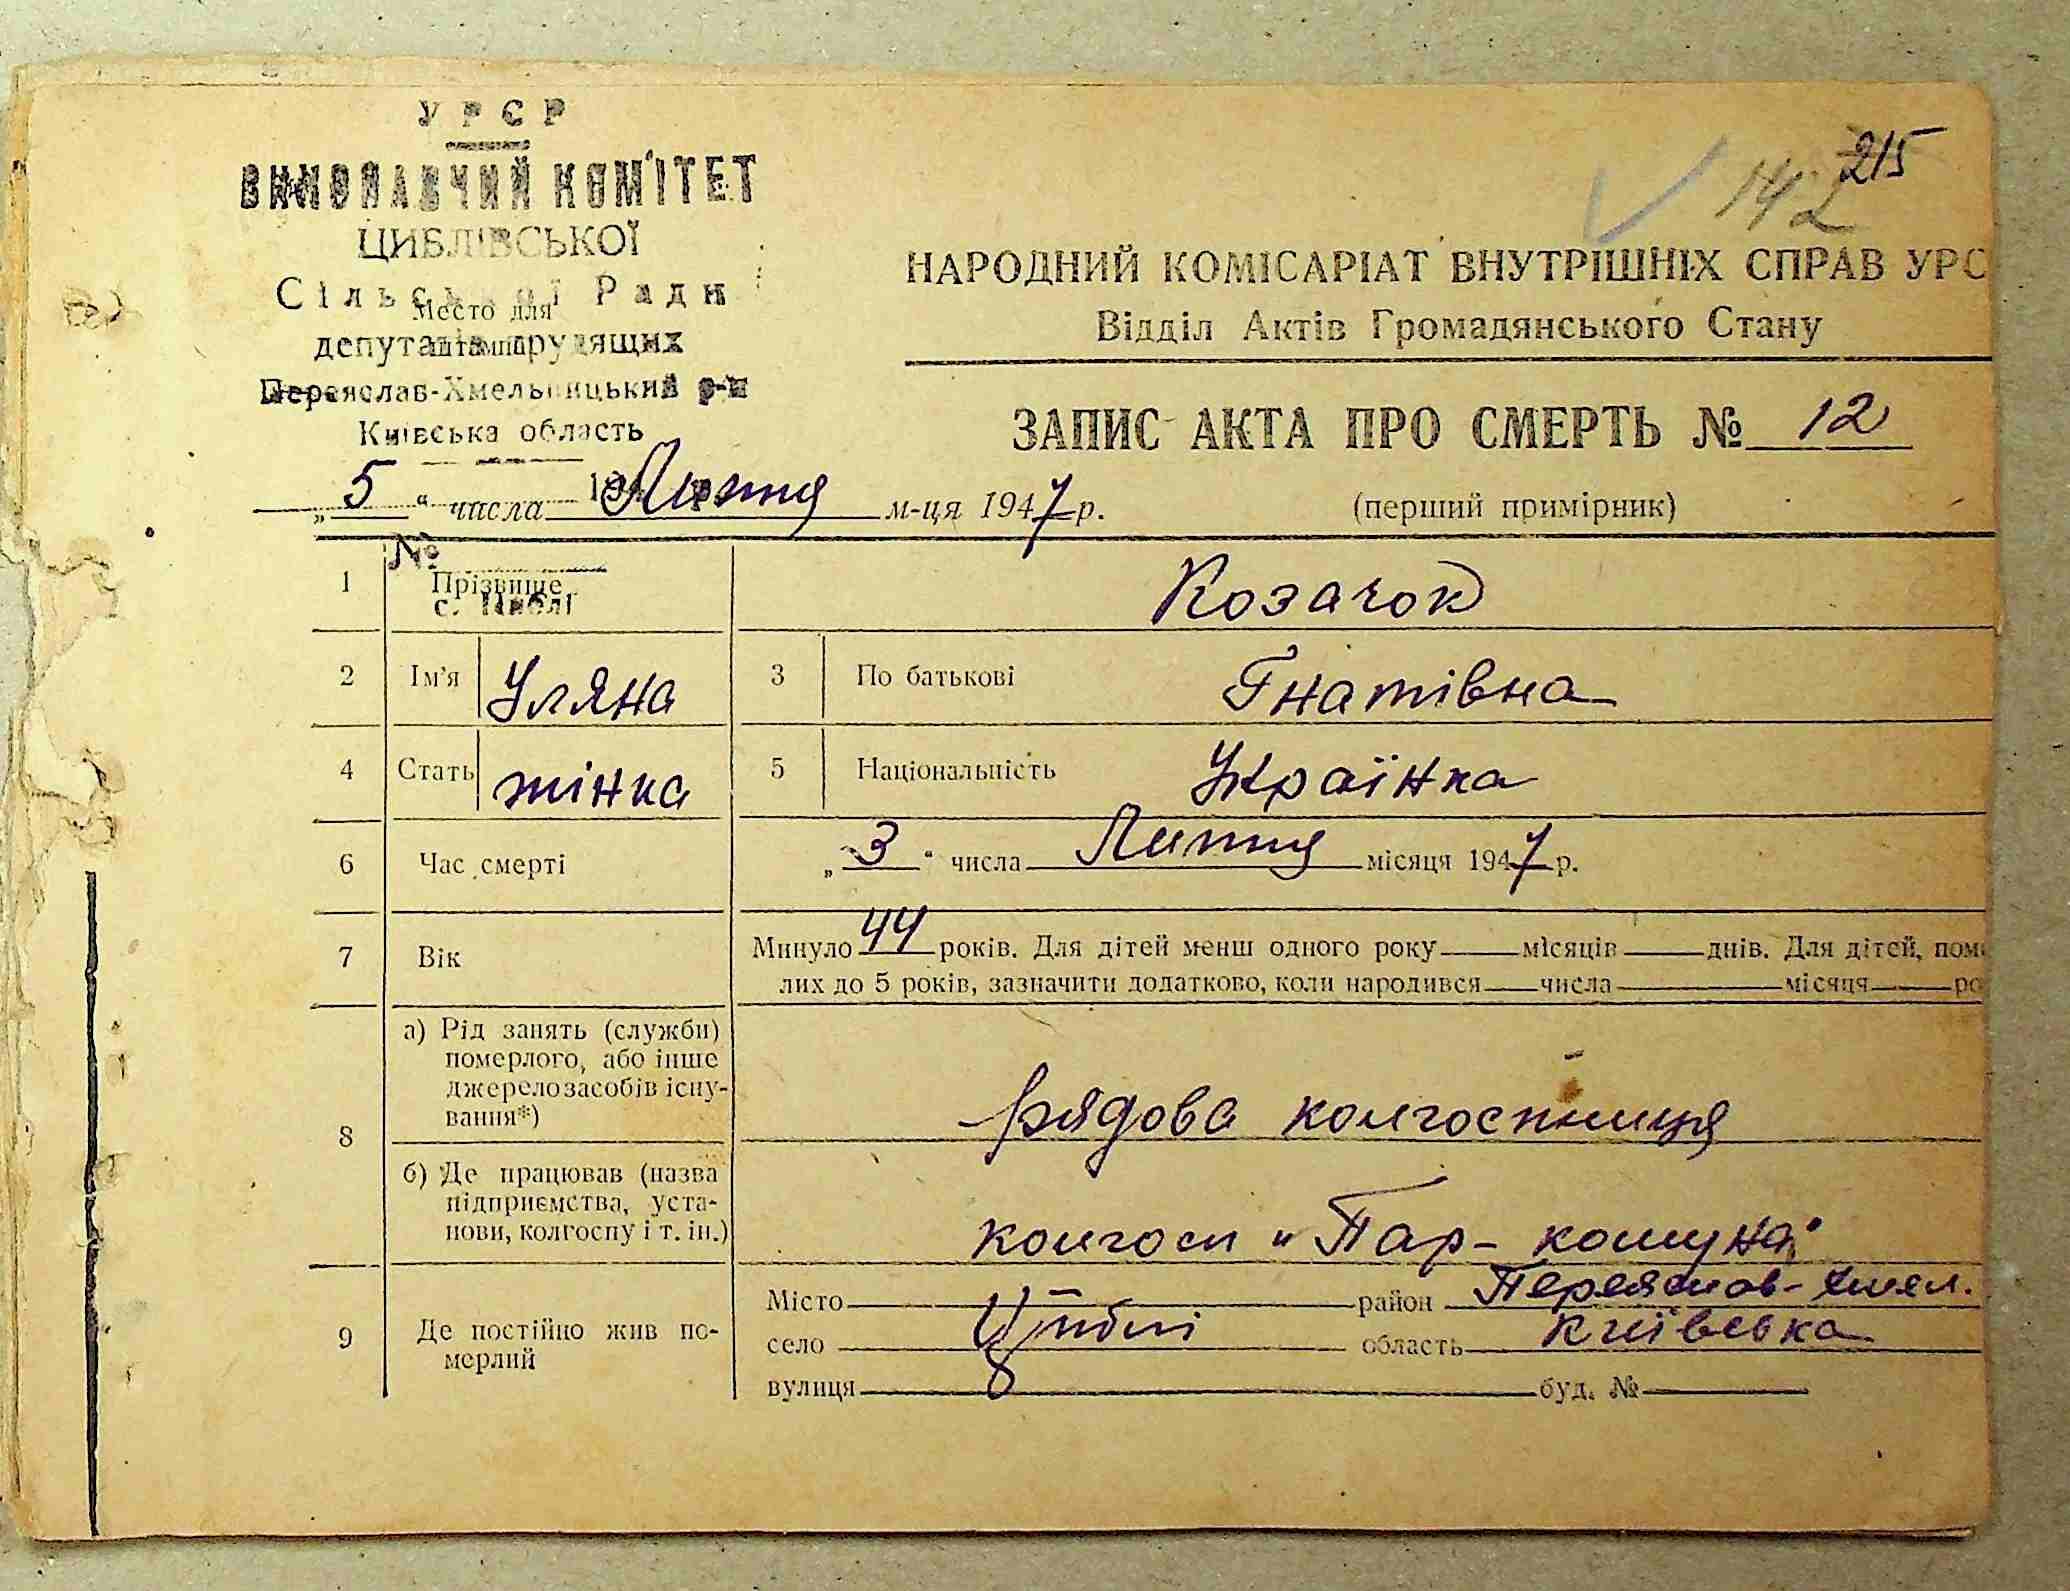 УРСР
ВИКОНАВЧИЙ КОМІТЕТ
ЦИБЛІВСЬКОЇ
Сільської Ради
Место для
депутатів трудящих
штампа
Переяслав-Хмельницький р-н
Київська область
215
142
НАРОДНИЙ КОМІСАРІАТ ВНУТРІШНІХ СПРАВ УРС
Відділ Актів Громадянського Стану
ЗАПИС АКТА ПРО СМЕРТЬ № 12
(перший примірник)
„5“ числа Липня м-ця 1947 р.
№
с. Циблі
1 Прізвище Козачок
2 Ім'я Уляна 3 По батькові Гнатівна
4 Стать жінка 5 Національність Українка
6 Час смерті „3“ числа Липня місяця 1947 р.
7 Вік Минуло 44 років. Для дітей менш одного року місяців днів. Для дітей, пом
лих до 5 років, зазначити додатково, коли народився числа місяця ро
8 а) Рід занять (служби)
померлого, або інше
джерело засобів існу-
вання*)
рядова колгоспниця
б) Де працював (назва
підприємства, уста-
нови, колгоспу і т. ін.)
колгосп „Пар-комуна"
9 Де постійно жив по-
мерлий
Місто район Переяслав-Хмел.
село Циблі область Київська
вулиця буд. №